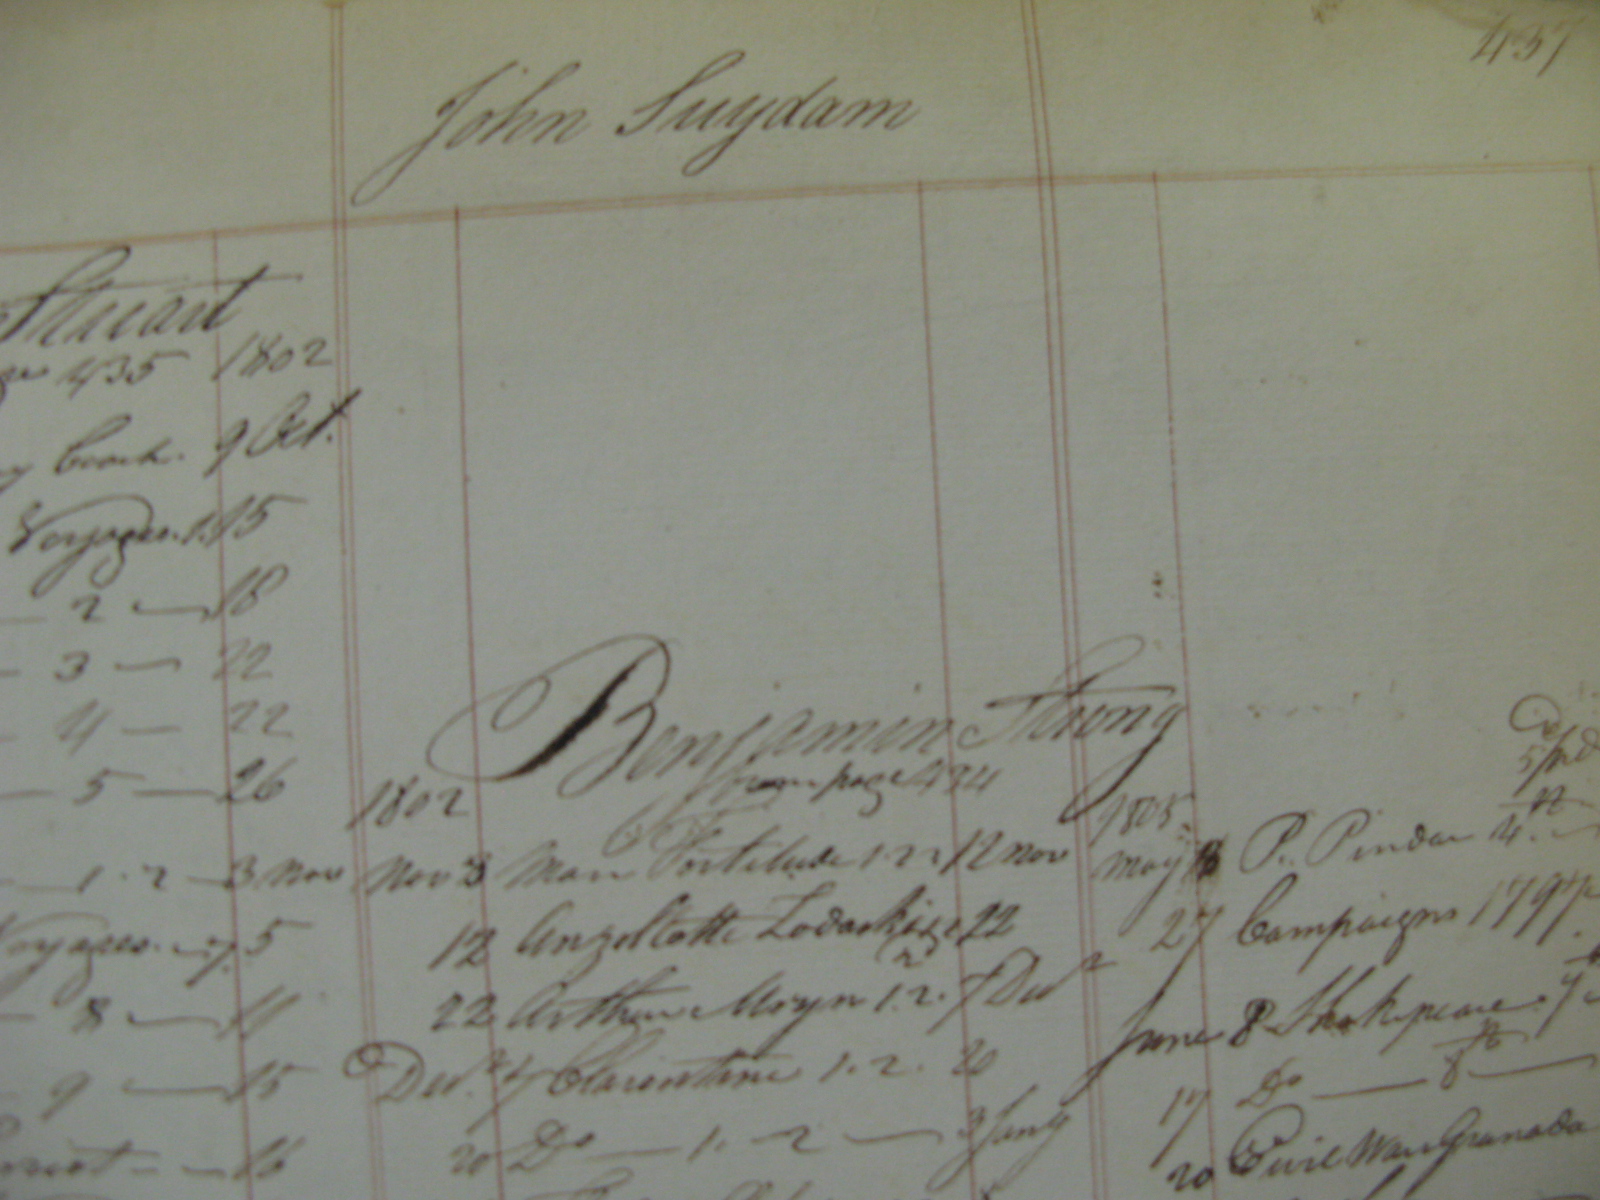 437
John Suydam
Stuart
435 1802
9 Oct.
Voyages. 1. 15
2 — 18
3 — 22
4 — 22
5 — 26
1. 2 — 3 Nov
Voyages. — 7. 5
8 — 11
9 — 15
— 16
Benjamin Strong
from page 434
1802
Nov 3 Man Fortitude 1. 2. 12 Nov
12 1.2 22
22 Arthur Mervyn 1. 2. 7 Decr
Decr 7 Clarentine 1. 2. 20
20 Do — 1. — 2 — 3 Jany
1805
May 18 P. Pindar 4.
27 Campaigns 1797
June 8 Shakspeare. 7
17 Do — 8th —
20 Civil War Granada